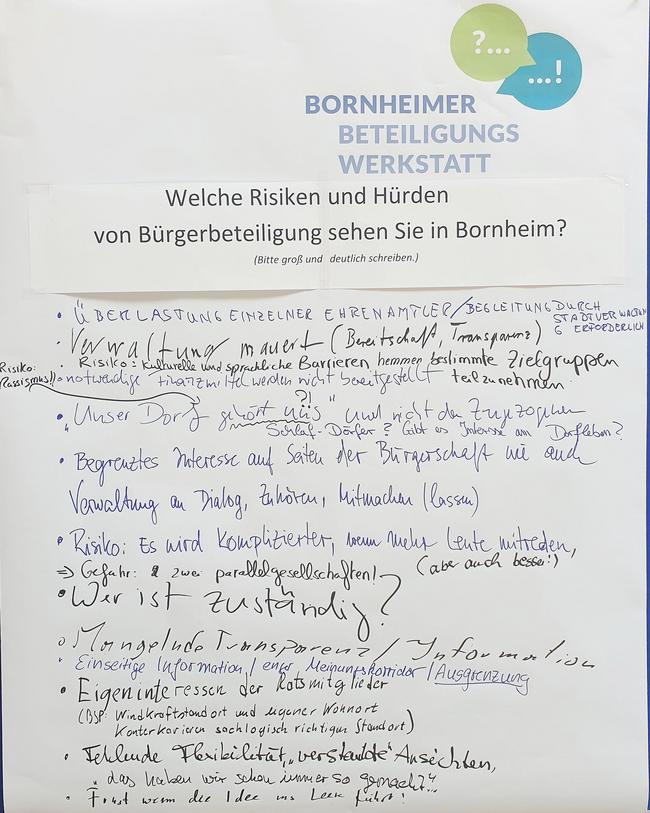 ?...
...!
BORNHEIMER
BETEILIGUNGS
WERKSTATT
Welche Risiken und Hürden
von Bürgerbeteiligung sehen Sie in Bornheim?
(Bitte groß und deutlich schreiben.)
• ÜBERLASTUNG EINZELNER EHRENAMTLER/BEGLEITUNG DURCH
STADTVERWALTUNG
ERFORDERLICH
• Verwaltung mauert (Bereitschaft, Transparenz)
• Risiko: kulturelle und sprachliche Barrieren hemmen bestimmte Zielgruppen
teilzunehmen
Risiko:
Rassismus!!
• notwendige Finanzmittel werden nicht bereitgestellt
?!
• "Unser Dorf gehört üüs" und nicht den Zugezogenen
Schlaf-Dörfer? Gibt es Interesse am Dorfleben?
• Begrenztes Interesse auf Seiten der Bürgerschaft wie auch
Verwaltung an Dialog, Zuhören, Mitmachen (lassen)
• Risiko: Es wird komplizierter, wenn mehr Leute mitreden,
(aber auch besser!)
⇒ Gefahr: zwei parallelgesellschaften!
• Wer ist zuständig?
• Mangelnde Transparenz/Information
• Einseitige Information / enger Meinungskorridor / Ausgrenzung
• Eigeninteressen der Ratsmitglieder
(BSP: Windkraftstandort und eigener Wohnort
Konterkarieren sachlogisch richtigen Standort)
• Fehlende Flexibilität, "verstaubte" Ansichten,
"das haben wir schon immer so gemacht"...
• Frust wenn die Idee ins Leere führt!